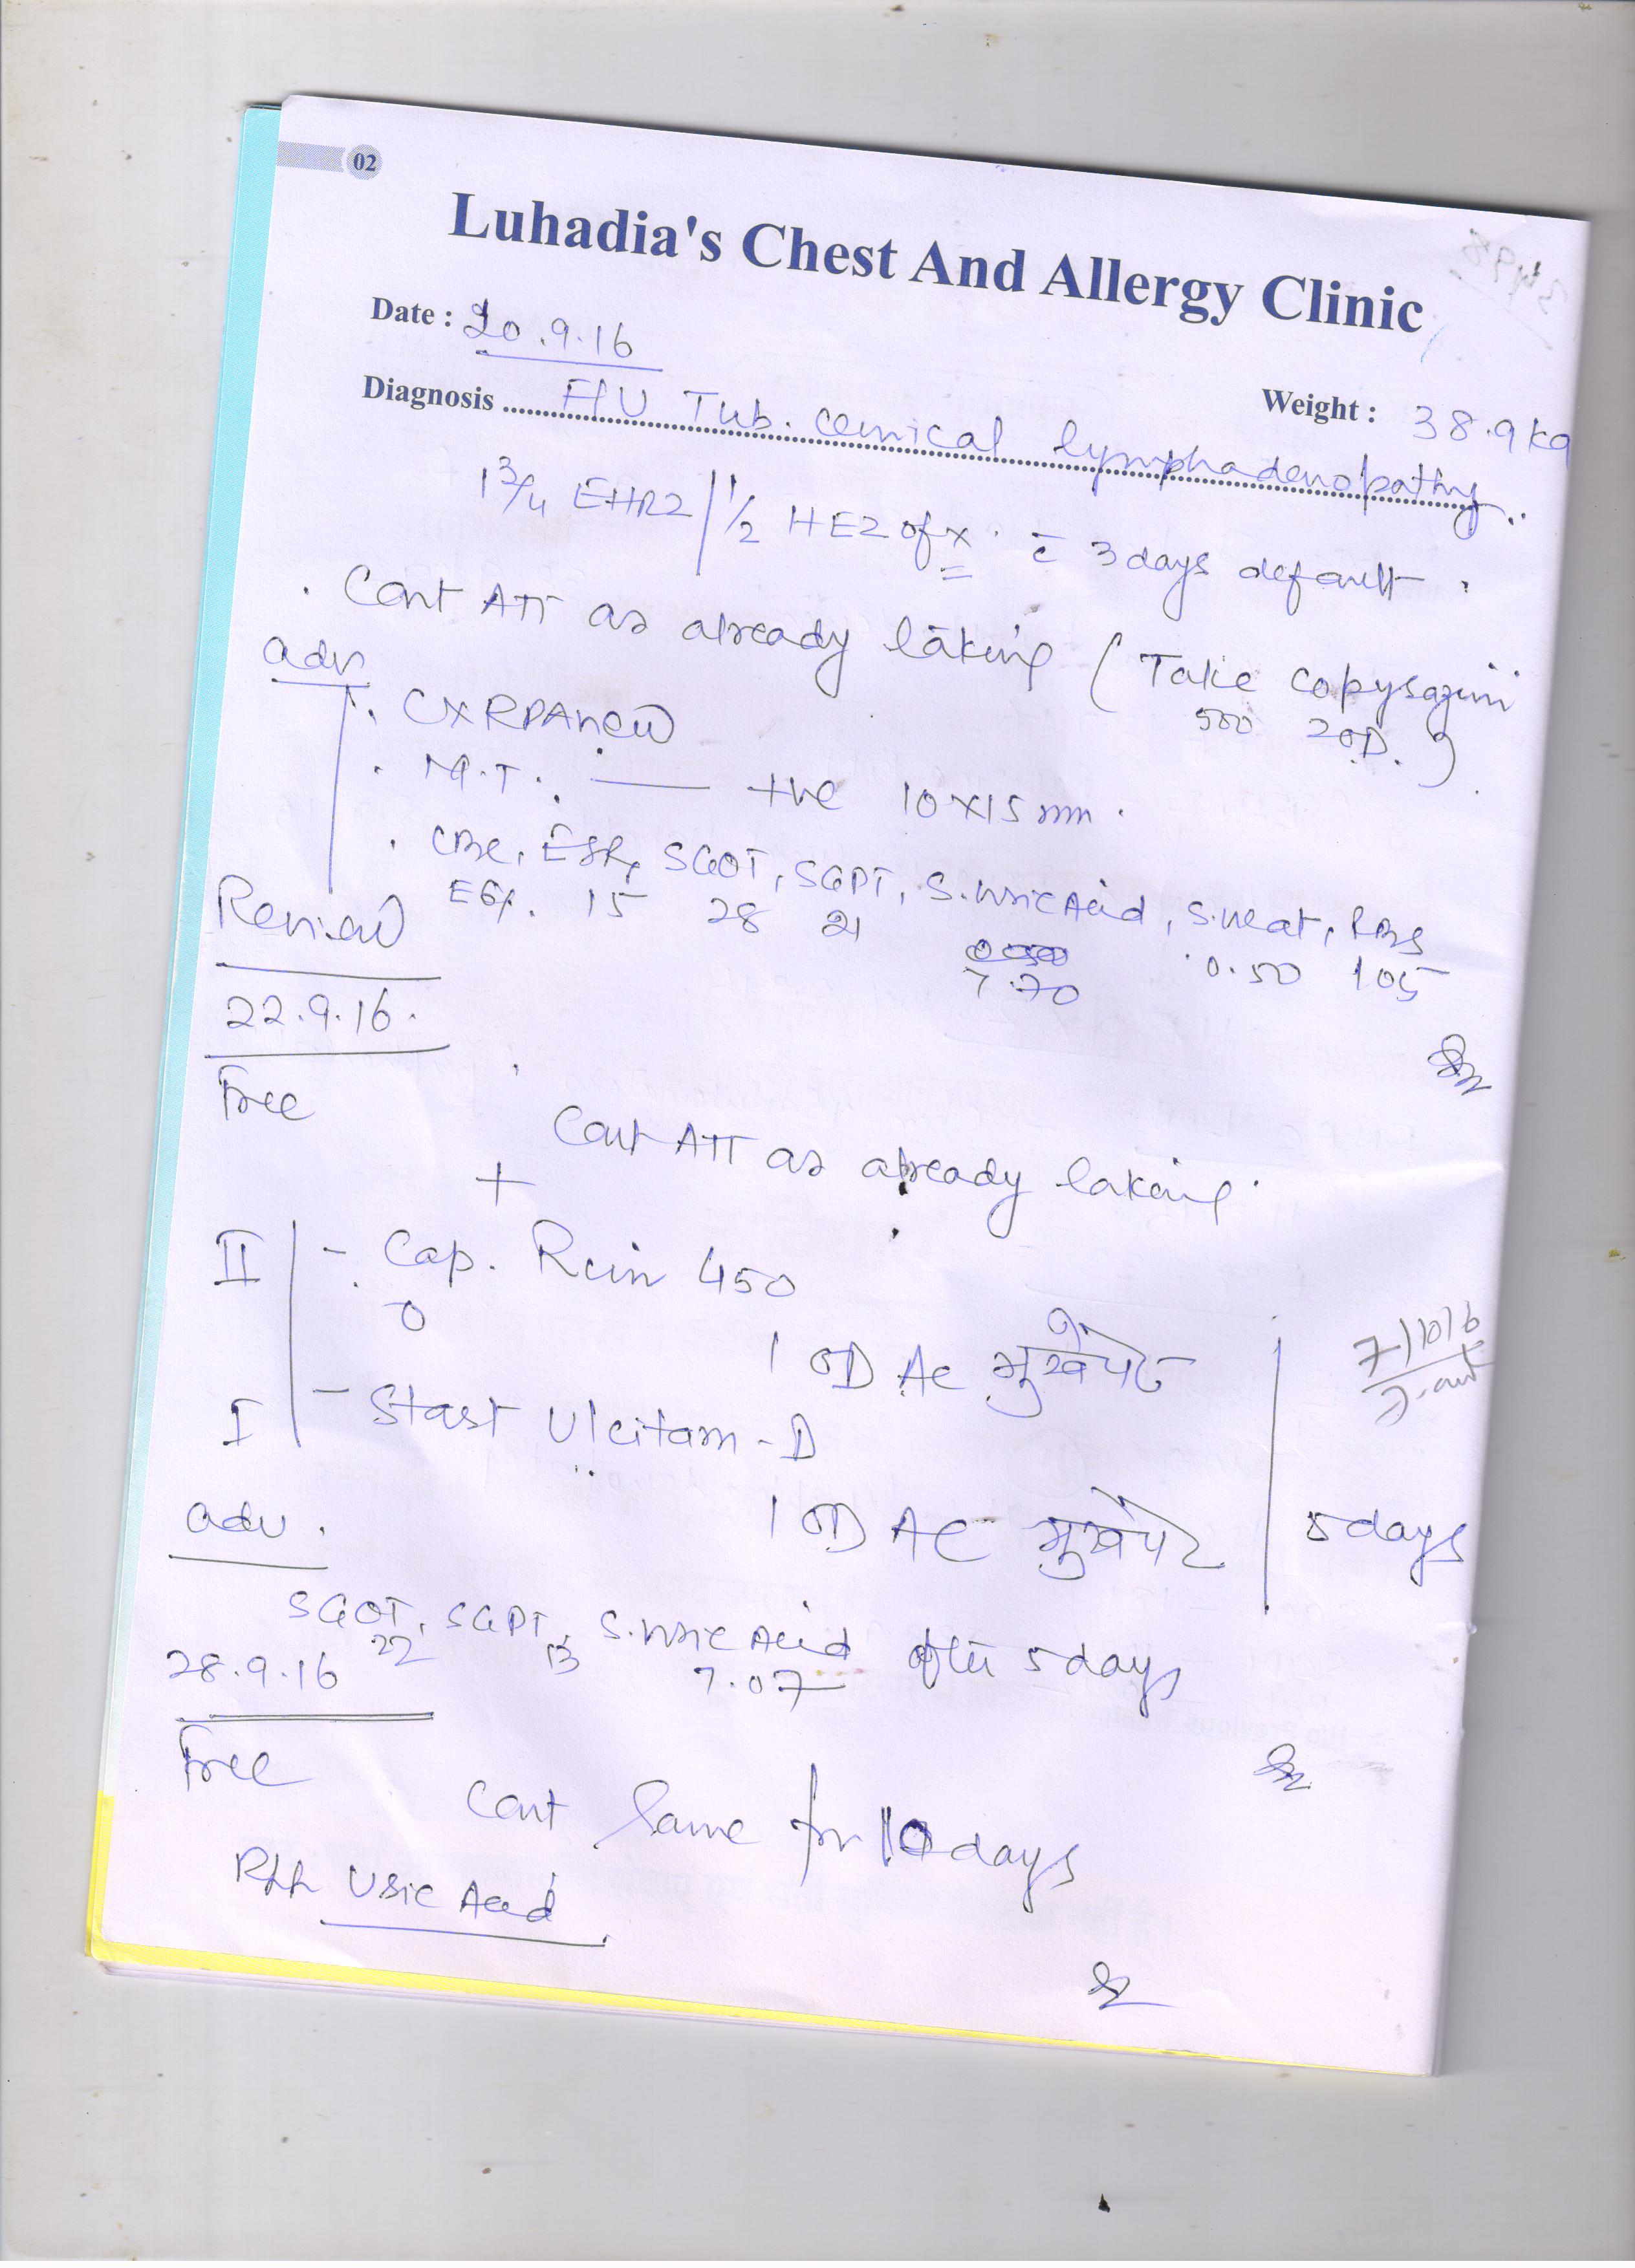 02
Luhadia's Chest And Allergy Clinic
Date : 20.9.16
Weight : 38.9 kg
Diagnosis F/U Tub. Cervical lymphadenopathy
1 3/4 EHRZ / 1/2 HEZ ofx. c̄ 3 days default.
. Cont ATT as already taking ( Take
500 2 OD. )
adv
. CXR PA view
. M.T. — +ve 10 x 15 mm.
. CBC, ESR, SGOT, SGPT, S. Uric Acid, S. , RBS
15 28 21 7.70 0.50 105
Review
22.9.16.
Free
Cont ATT as already taking.
+
II - Cap. Rcin 450
1 OD AC भूखे पेट
7/10/16
I - Start Ulcitam - D
1 OD AC भूखे पेट 5 days
adv.
SGOT, SGPT, S. Uric Acid after 5 days
22 13 7.07
28.9.16
Free
Cont same for 10 days
Uric Acid